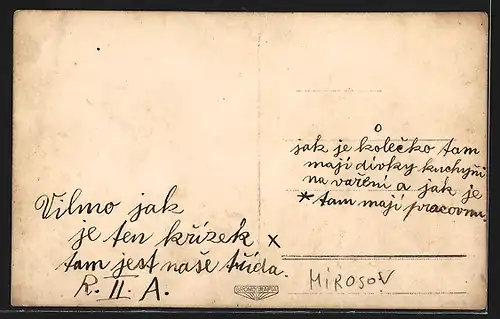 Vilmo jak
je ten křízek x
tam jest naše třída.
R. II. A.
o
jak je kolečko tam
mají dívky kuchyňi
na vaření a jak je
* tam mají pracovnu.
MIROSOV